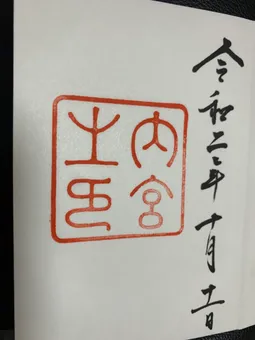 令和二年十月十一日
内宮
之印